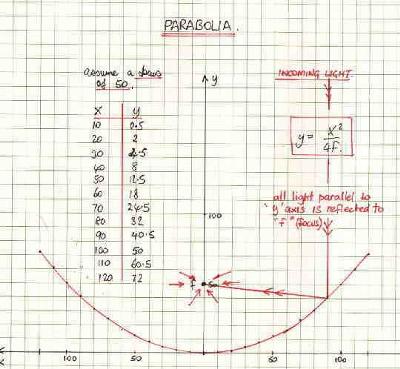 PARABOLIA.
assume a focus
of 50.
x y
10 0.5
20 2
30 4.5
40 8
50 12.5
60 18
70 24.5
80 32
90 40.5
100 50
110 60.5
120 72
y
INCOMING LIGHT.
y = x²
4f.
all light parallel to
'y' axis is reflected to
"f" (focus)
100
f 50
100 50 50 100